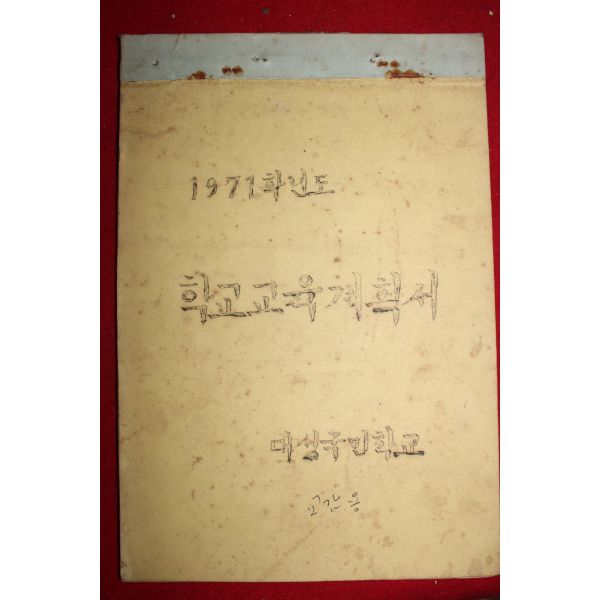 1971학년도
학교교육계획서
대성국민학교
교감용